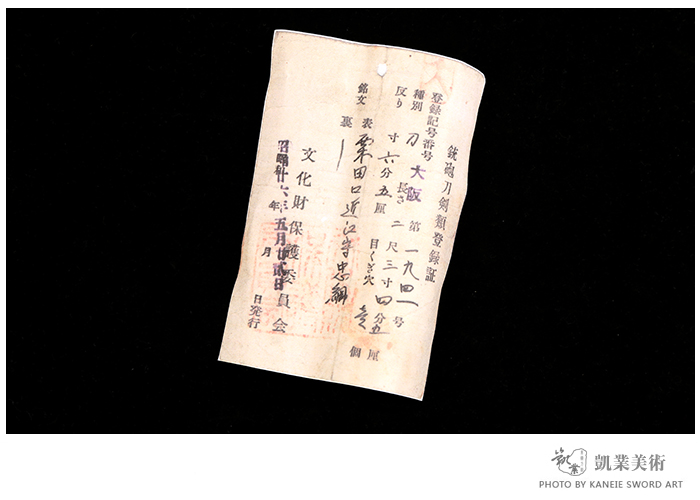 銃砲刀剣類登録証
登録記号番号 大阪 第一九四一号
種別 刀 長さ 二尺三寸四分五厘
反り 寸六分五厘 目くぎ穴 壹個
銘文 表 粟田口近江守忠綱
裏 一
文化財保護委員会
昭和廿六年五月廿貳日
年 月 日発行
凱業美術
PHOTO BY KANEIE SWORD ART